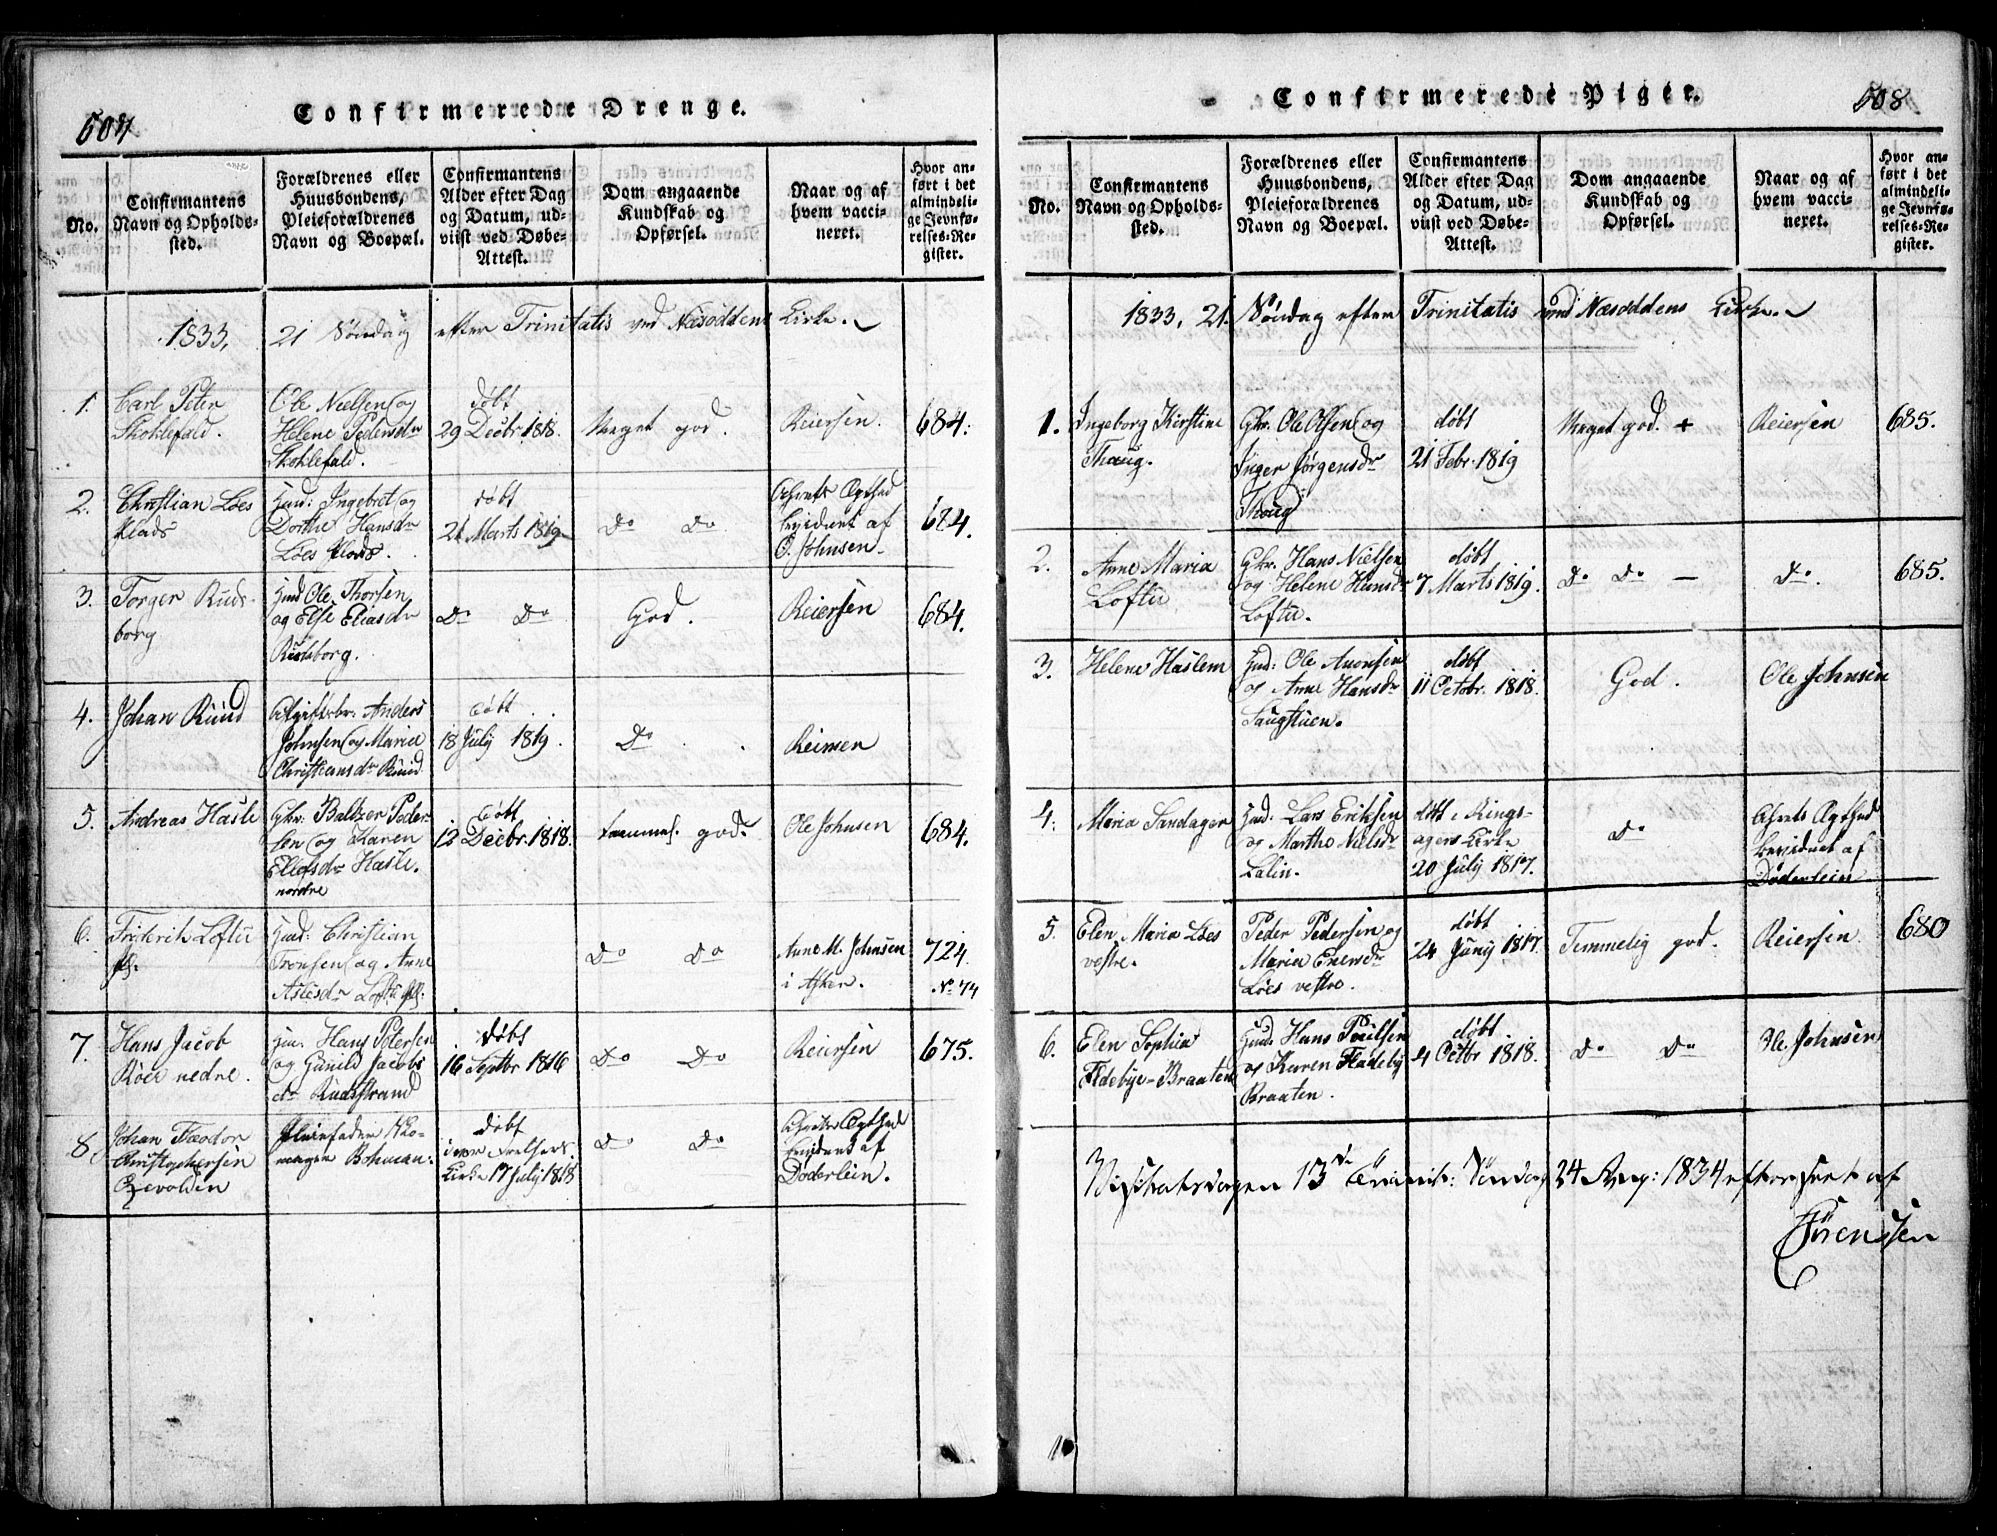 504
Confirmerede Drenge.
No.
Confirmantens
Navn og Opholds-
sted.
Forældrenes eller
Huusbondens,
Pleieforældrenes
Navn og Boepæl.
Confirmantens
Alder efter Dag
og Datum, ud-
viist ved Døbe-
Attest.
Dom angaaende
Kundskab og
Opførsel.
Naar og af
hvem vacci-
neret.
Hvor an-
ført i det
almindeli-
ge Jevnfø-
relses-Re-
gister.
1833, 21 Søndag efter Trinitatis ved Næsoddens Kirke.
1.
Carl Peter
Skoklefald.
Ole Nielsen og
Helene Pedersdr
Skoklefald.
døbt
29 Decbr. 1818.
Meget god.
Reiersen.
684.
2.
Christian Løes
Plads
Huusd: Ingebret og
Dorthe Hansdr
Løes Plads.
døbt
21 Marts 1819
Do Do
Ahrets
bevidnet af
O. Johnsen.
684.
3.
Torger Ruds-
borg
Huusd Ole Thorsen
og Else Eliasdr
Rudsborg.
Do Do
God.
Reiersen
684.
4.
Johan Ruud
Anders
Johnsen og Maria
Christiansdr Ruud
døbt
18 July 1819.
Do
Reiersen
5.
Andreas Hasle
Gbr. Baltzer Peder-
sen og Karen
Ellefsdr Hasle.
nordre
døbt
12 Decbr. 1818.
god.
Ole Johnsen
684.
6.
Friderik Loftu
Huusd: Christian
Tronsen og Anne
Aslesdr Loftu
Do Do
Anne M. Johnsen
i Asker.
724.
No 44
7.
Hans Jacob
Roer nedre.
Hans Petersen
og Gunild Jacobs
dr Rudsstrand
døbt
16 Septbr 1816
Do Do
Reiersen
675.
8.
Johan Fæodor
Christophersen
Pleiefader
Bohman.
døbt
i vor Frelsers
Kirke 17 July 1818
Do Do
bevidnet af
Døderlein.
508
Confirmerede Piger.
No.
Confirmantens
Navn og Opholds-
sted.
Forældrenes eller
Huusbondens,
Pleieforældrenes
Navn og Boepæl.
Confirmantens
Alder efter Dag
og Datum, ud-
viist ved Døbe-
Attest.
Dom angaaende
Kundskab og
Opførsel.
Naar og af
hvem vacci-
neret.
Hvor an-
ført i det
almindeli-
ge Jevnfø-
relses-Re-
gister.
1833, 21. Søndag efter Trinitatis ved Næsoddens Kirke.
1.
Ingeborg Kirstine
Thaug.
Gbr. Ole Olsen og
Inger Jørgensdr
Thaug
døbt
21 Febr. 1819
Meget god. +
Reiersen
685.
2.
Anne Maria
Loftu
Gbr. Hans Nielsen
og Helene Hansdr
Loftu.
døbt
7 Marts 1819.
Do Do —
Do.
685.
3.
Helene Haslem
Huusd: Ole Aronsen
og Anne Hansdr
Saugstuen.
døbt
11 Octobr. 1818.
God.
Ole Johnsen
4.
Maria Sandager
Huusd: Lars Eriksen
og Marthe Nielsdr
Lalin.
døbt i Rings-
agers Kirke
20 July 1817.
Do
bevidnet af
Døderlein
5.
Elen Maria Løes
vestre.
Peder Pedersen og
Maria Enersdr
Løes vestre.
døbt
24 Juny 1817.
Temmelig god.
Reiersen.
680
6.
Elen Sophia
Fladebye-Braaten
Huusd: Hans Poulsen
og Karen Fladeby
Braaten.
døbt
4 Octbr 1818.
Do Do
Ole Johnsen
Visitatsdagen 13de Trinit: Søndag 24 Aug: 1834 efterseet af
Sørenssen